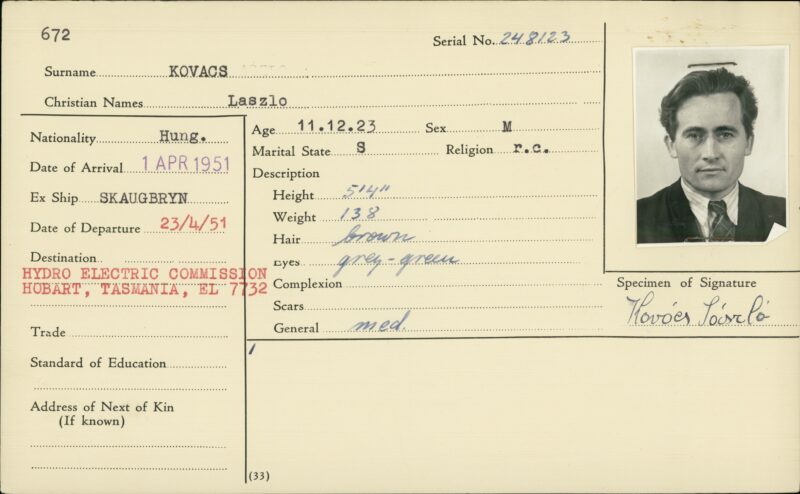 672
Serial No. 248123
Surname KOVACS
Christian Names Laszlo
Nationality Hung.
Date of Arrival 1 APR 1951
Ex Ship SKAUGBRYN
Date of Departure 23/4/51
Destination
HYDRO ELECTRIC COMMISSION
HOBART, TASMANIA, EL 7732
Trade
Standard of Education
Address of Next of Kin
(If known)
Age 11.12.23 Sex M
Marital State S Religion r.c.
Description
Height 5'4"
Weight 138
Hair brown
Eyes grey-green
Complexion
Scars
General med.
(33)
Specimen of Signature
Kovács László